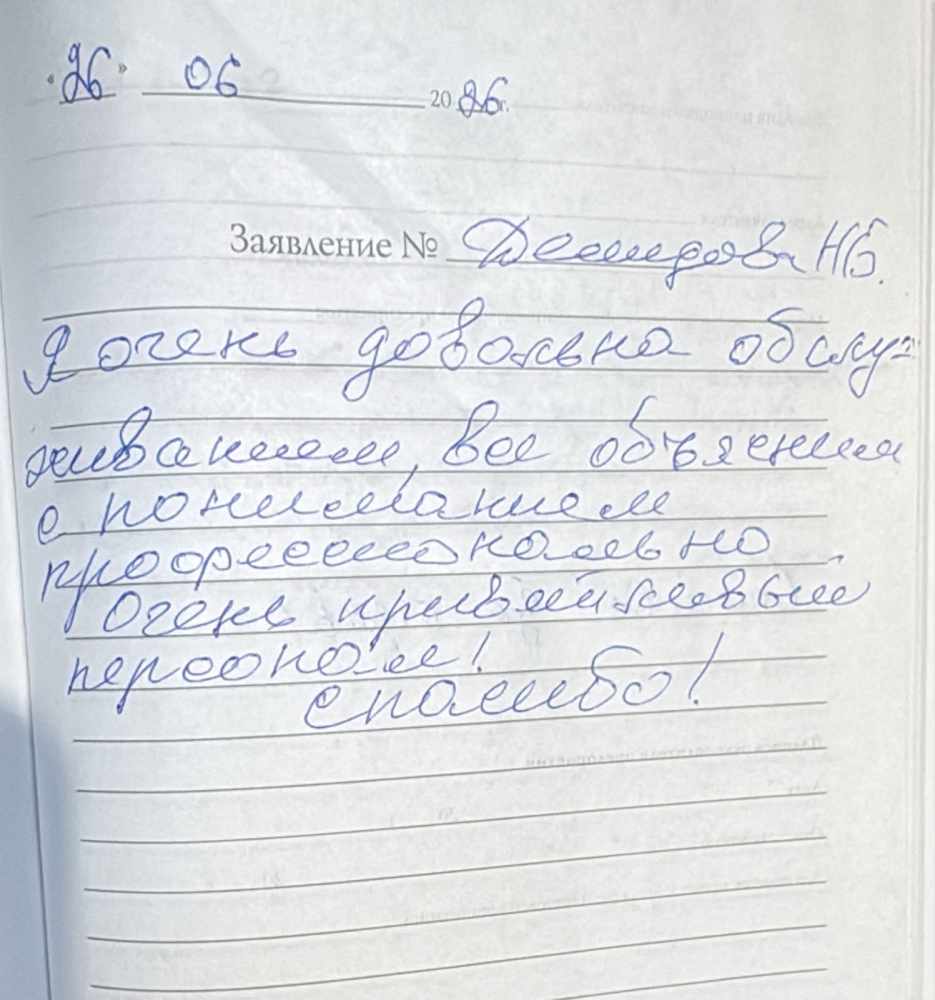 «26» 06 2026г.
Заявление № Демидова Н.Б.
Я очень довольна обслу-
живанием, все объяснили
с пониманием
профессионально
Очень приветливый
персонал!
Спасибо!